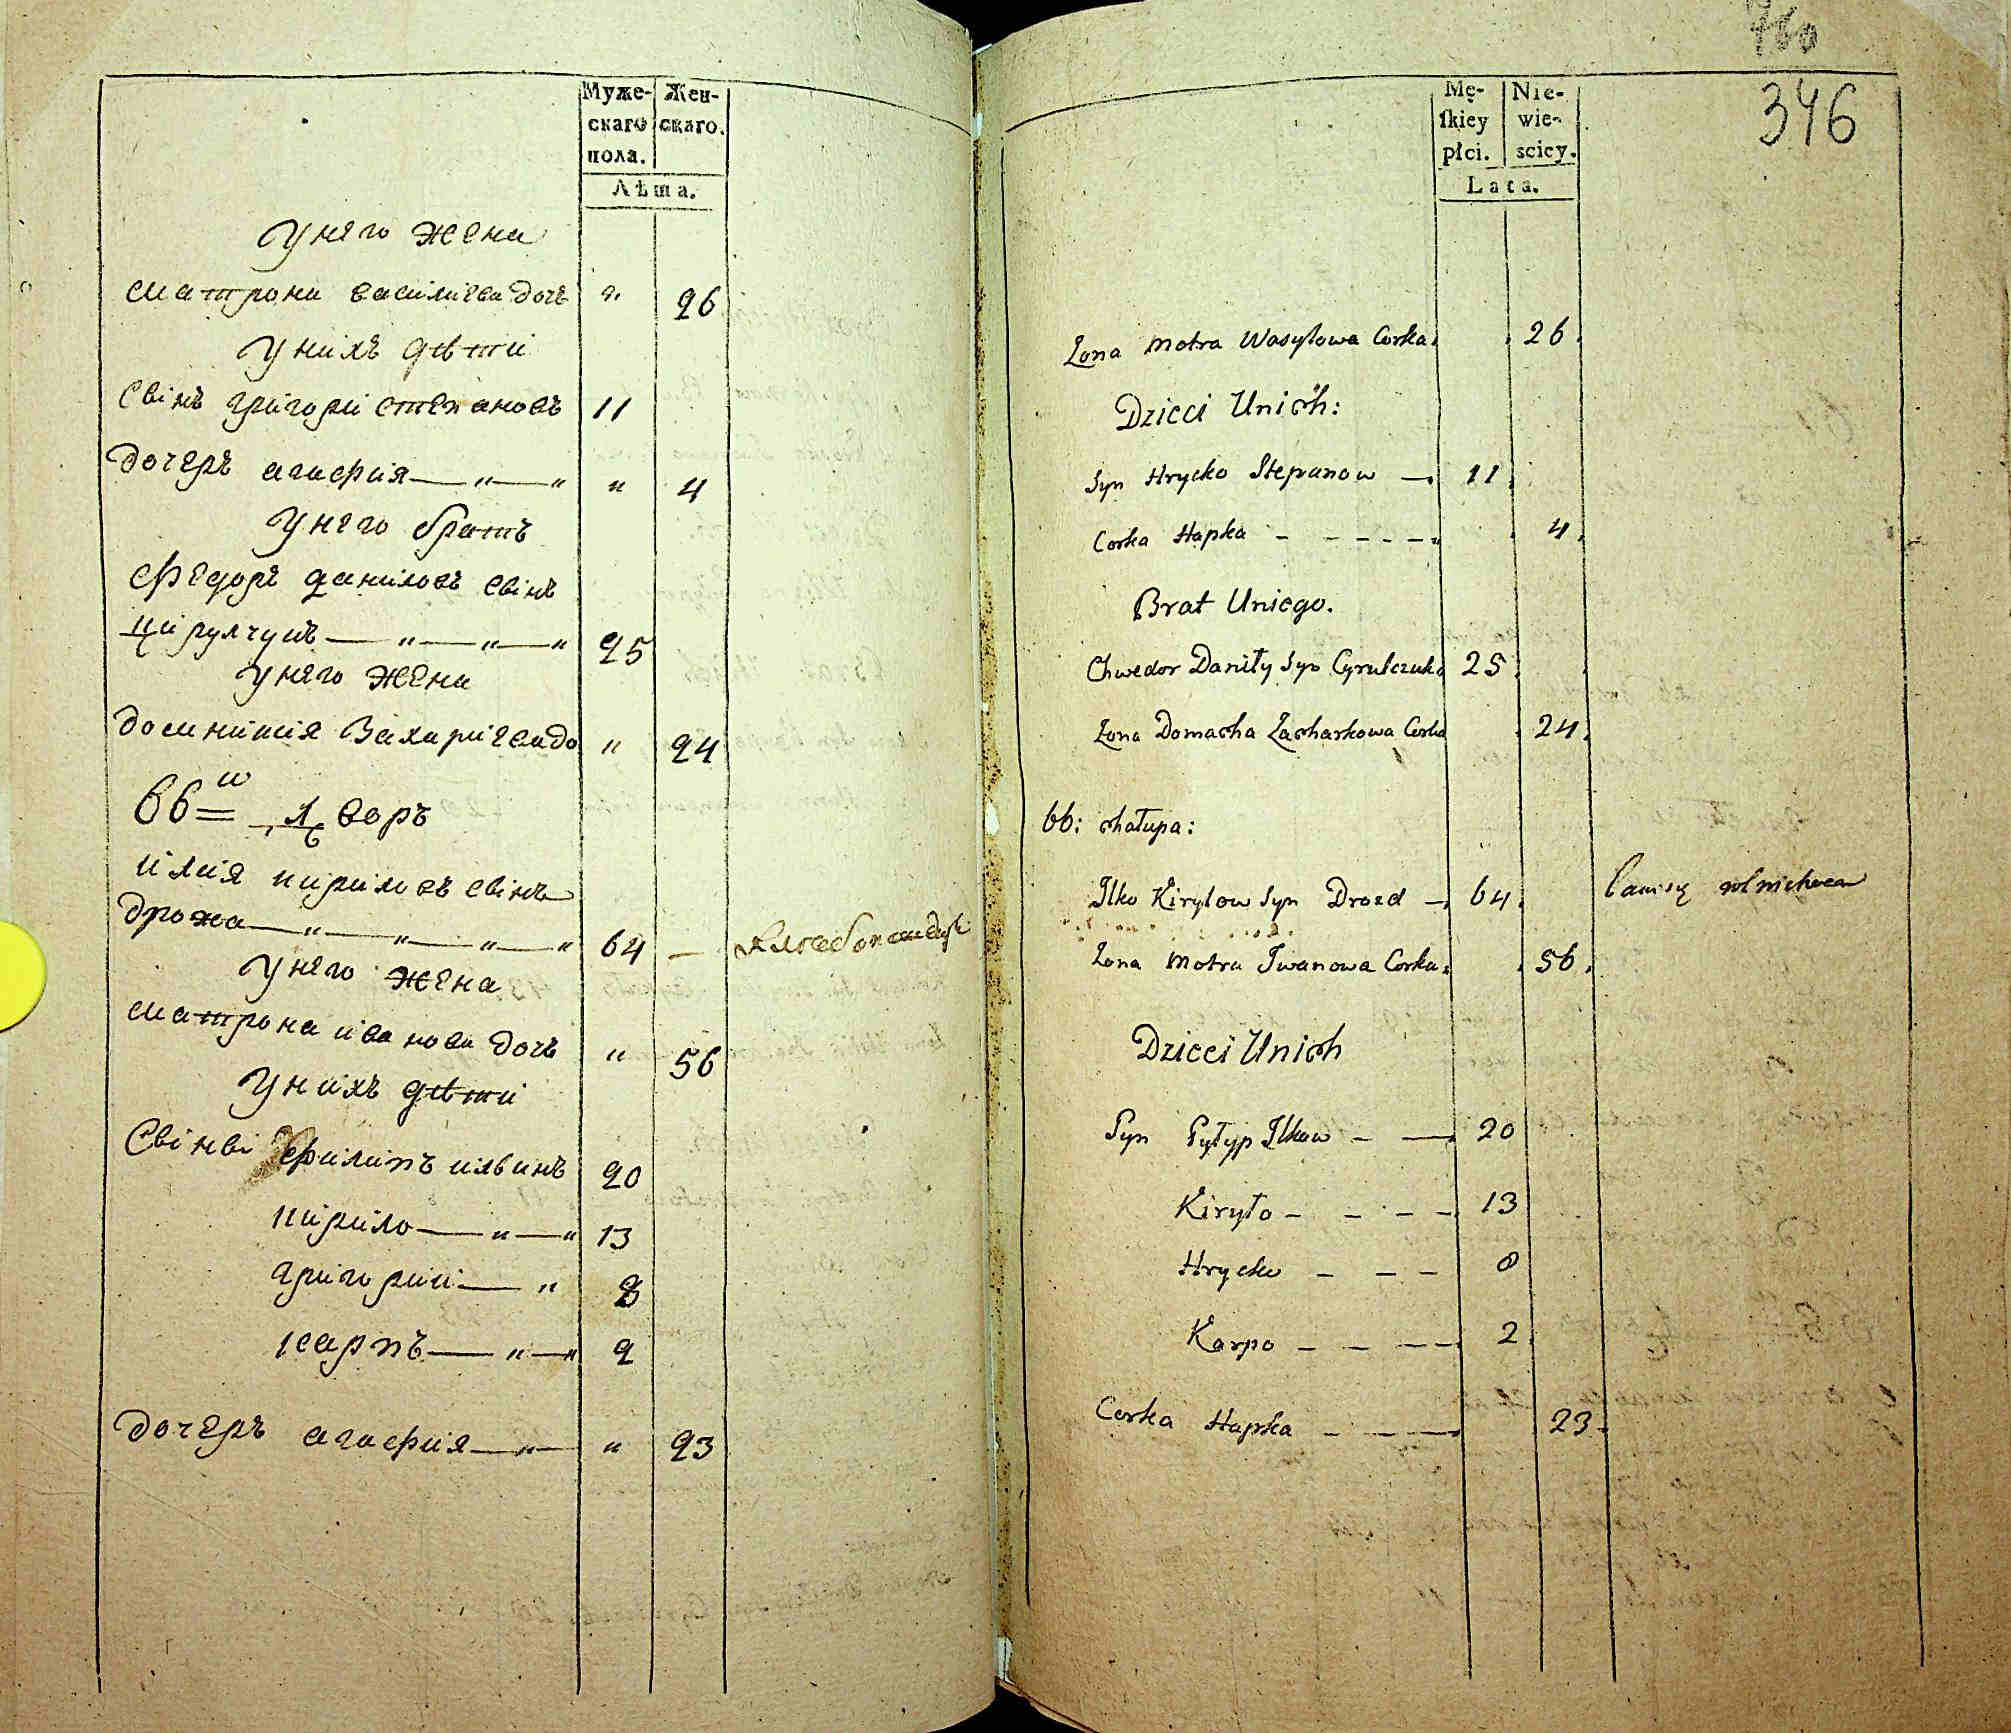 Муже-
скаго
пола.
Жен-
скаго.
Лѣта.
У него жена
матрона василиева дочь " 26
У нихъ дѣти
Сынъ григори степановъ 11
дочеръ агафия — " — " " 4
У него братъ
федоръ даниловъ сынъ
цирулчукъ — " — " — " 25
У него жена
домникия Захариева до " 24
66й дворъ
илия кириловъ сынъ
дрожа — " — " — " — " 64 —
У него жена
матрона иванова дочь " 56
У нихъ дѣти
Сыны филипъ ильинъ 20
кирило — " — " 13
григорий — " 8
карпъ — " — " 2
дочеръ агафия — " — " 23
760
346
Mę-
skiey
płci.
Nie-
wie-
sciey.
Lata.
Zona Motra Wasylowa Corka 26
Dzieci Unich:
Syn Hrycko Stepanow — 11
Corka Hapka - - - - - 4
Brat Uniego.
Chwedor Daniły Syn Cyrulczuk 25
Zona Domacha Zacharkowa Corka 24
66: chałupa:
Ilko Kirylow Syn Drozd — 64 rolnictwem
Zona Motra Iwanowa Corka 56
Dzieci Unich
Syn Pyłyp Ilkow - — 20
Kiryło - - - - 13
Hrycko - - - 8
Karpo - - - - 2
Corka Hapka - - - 23